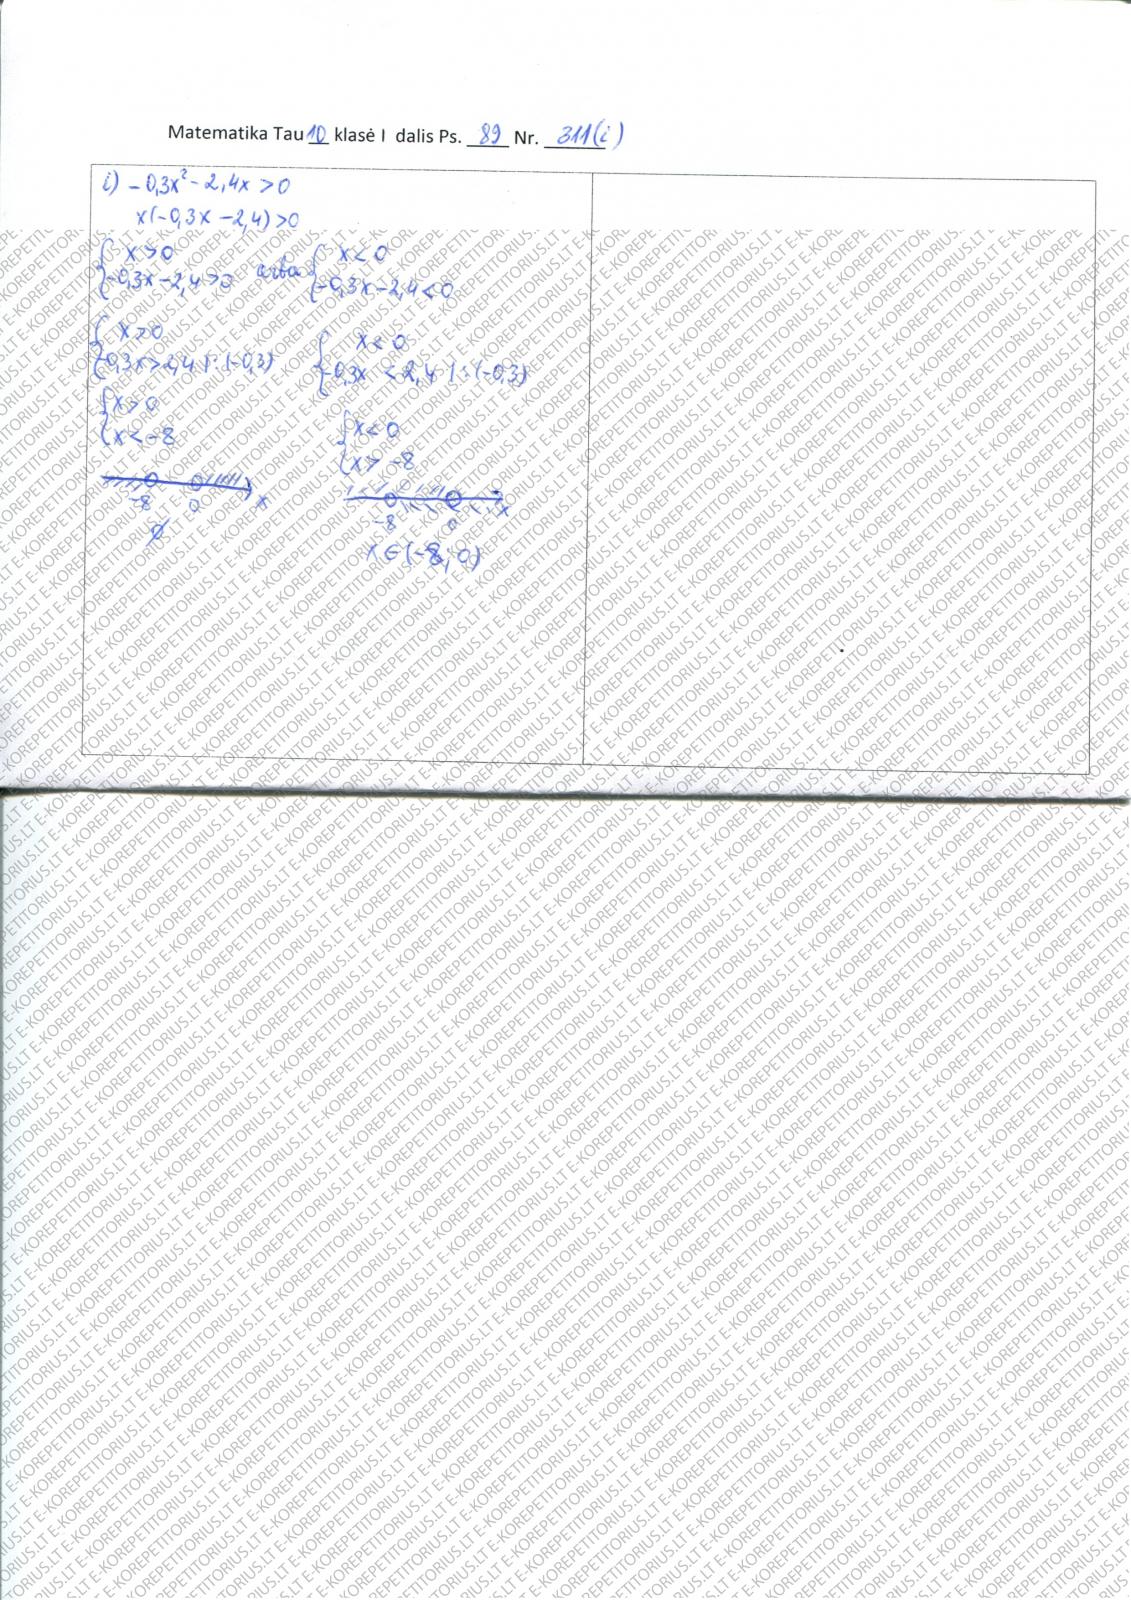 Matematika Tau 10 klasė I dalis Ps. 89 Nr. 311(i)
i) -0,3x² - 2,4x > 0
x(-0,3x - 2,4) > 0
{ x > 0
-0,3x - 2,4 > 0
arba
{ x < 0
-0,3x - 2,4 < 0
{ x > 0
-0,3x > 2,4 | : (-0,3)
{ x < 0
-0,3x < 2,4 | : (-0,3)
{ x > 0
x < -8
{ x < 0
x > -8
-8 0 x
∅
-8 0 x
x ∈ (-8; 0)
E-KOREPETITORIUS.LT